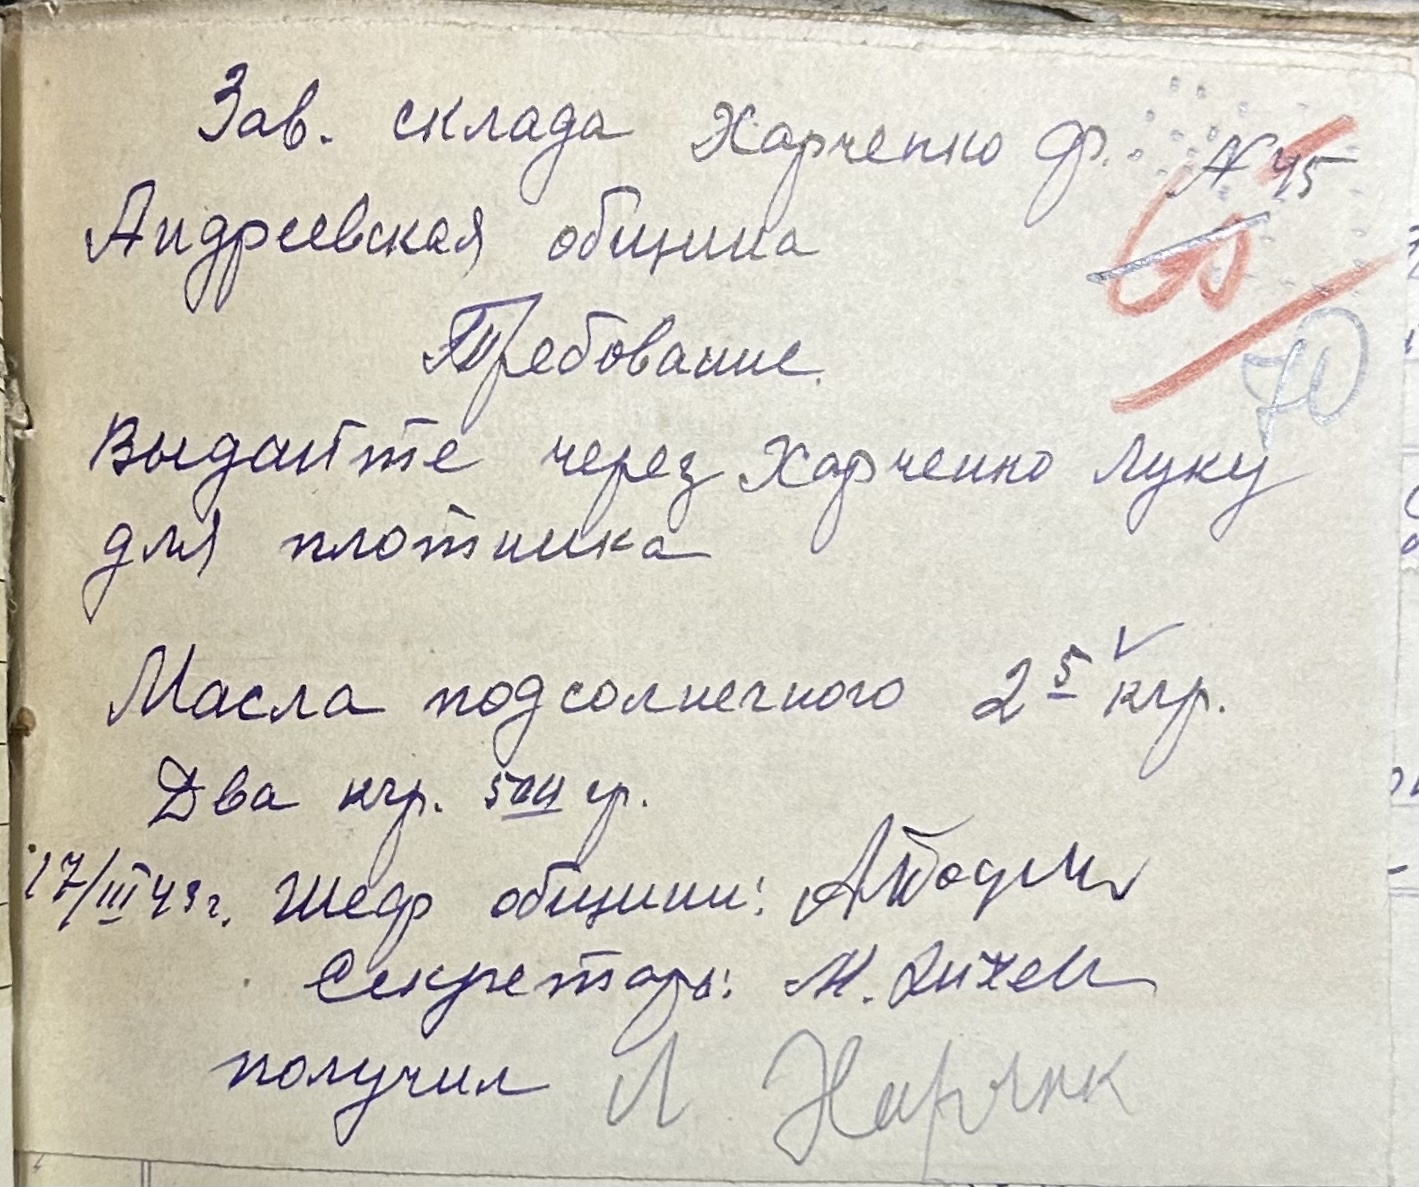 Зав. склада Харченко Ф. № 45
Андреевская община
60
Требование.
70
Выдайте через Харченко Луку
для плотника
Масла подсолнечного 2 5 кгр.
Два кгр. 500 гр.
17/III 43 г. Шеф общины:
Секретарь: М.
получил Л